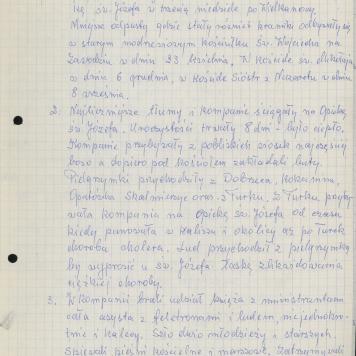 się św. Józefa w trzecią niedzielę po Wielkanocy.
Mniejsze odpusty gdzie stały również kramiki odbywały się
w starym modrzewiowym kościółku św. Wojciecha na
Zawodziu w dniu 23 kwietnia. W kościele św. Mikołaja
w dniu 6 grudnia, w kościele Sióstr z Nazaretu w dniu
8 września.
2. Najliczniejsze tłumy i kompanie ściągały na Opiekę
św. Józefa. Uroczystości trwały 8 dni - było ciepło.
Kompanie przybywały z pobliskich wiosek najczęściej
boso a dopiero pod kościołem zakładali buty.
Pielgrzymki przychodziły z Dobrzeca, Kokanina,
Opatówka Skalmierzyc oraz z Turku. Z Turku przyby-
wała kompania na Opiekę św. Józefa od czasu
kiedy panowała w Kaliszu i okolicy aż po Turek
choroba cholera. Lud przychodził z pielgrzymką
by wyprosić u św. Józefa łaskę zlikwidowania
ciężkiej choroby.
3. W kompanii brali udział księża z ministrantami
cała asysta z feretronami i ludem, niejednokrot-
nie i kalecy. Szło dużo młodzieży i starszych.
Śpiewali pieśni kościelne i marszowe. Zatrzymywali